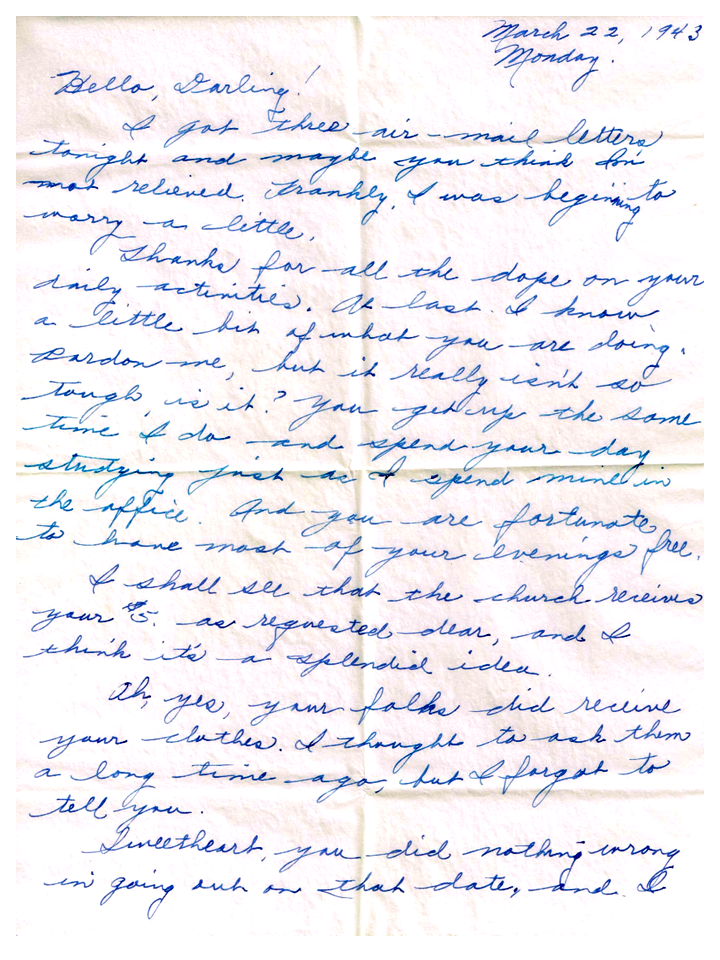 March 22, 1943
Monday.
Hello, Darling!
I got three air-mail letters
tonight and maybe you think I'm
not relieved. Frankly, I was beginning to
worry a little.
Thanks for all the dope on your
daily activities. At last I know
a little bit of what you are doing.
Pardon me, but it really isn't so
tough, is it? You get up the same
time I do and spend your day
studying just as I spend mine in
the office. And you are fortunate
to have most of your evenings free.
I shall see that the church receives
your $5. as requested dear, and I
think it's a splendid idea.
Oh, yes, your folks did receive
your clothes. I thought to ask them
a long time ago, but I forgot to
tell you.
Sweetheart, you did nothing wrong
in going out on that date, and I